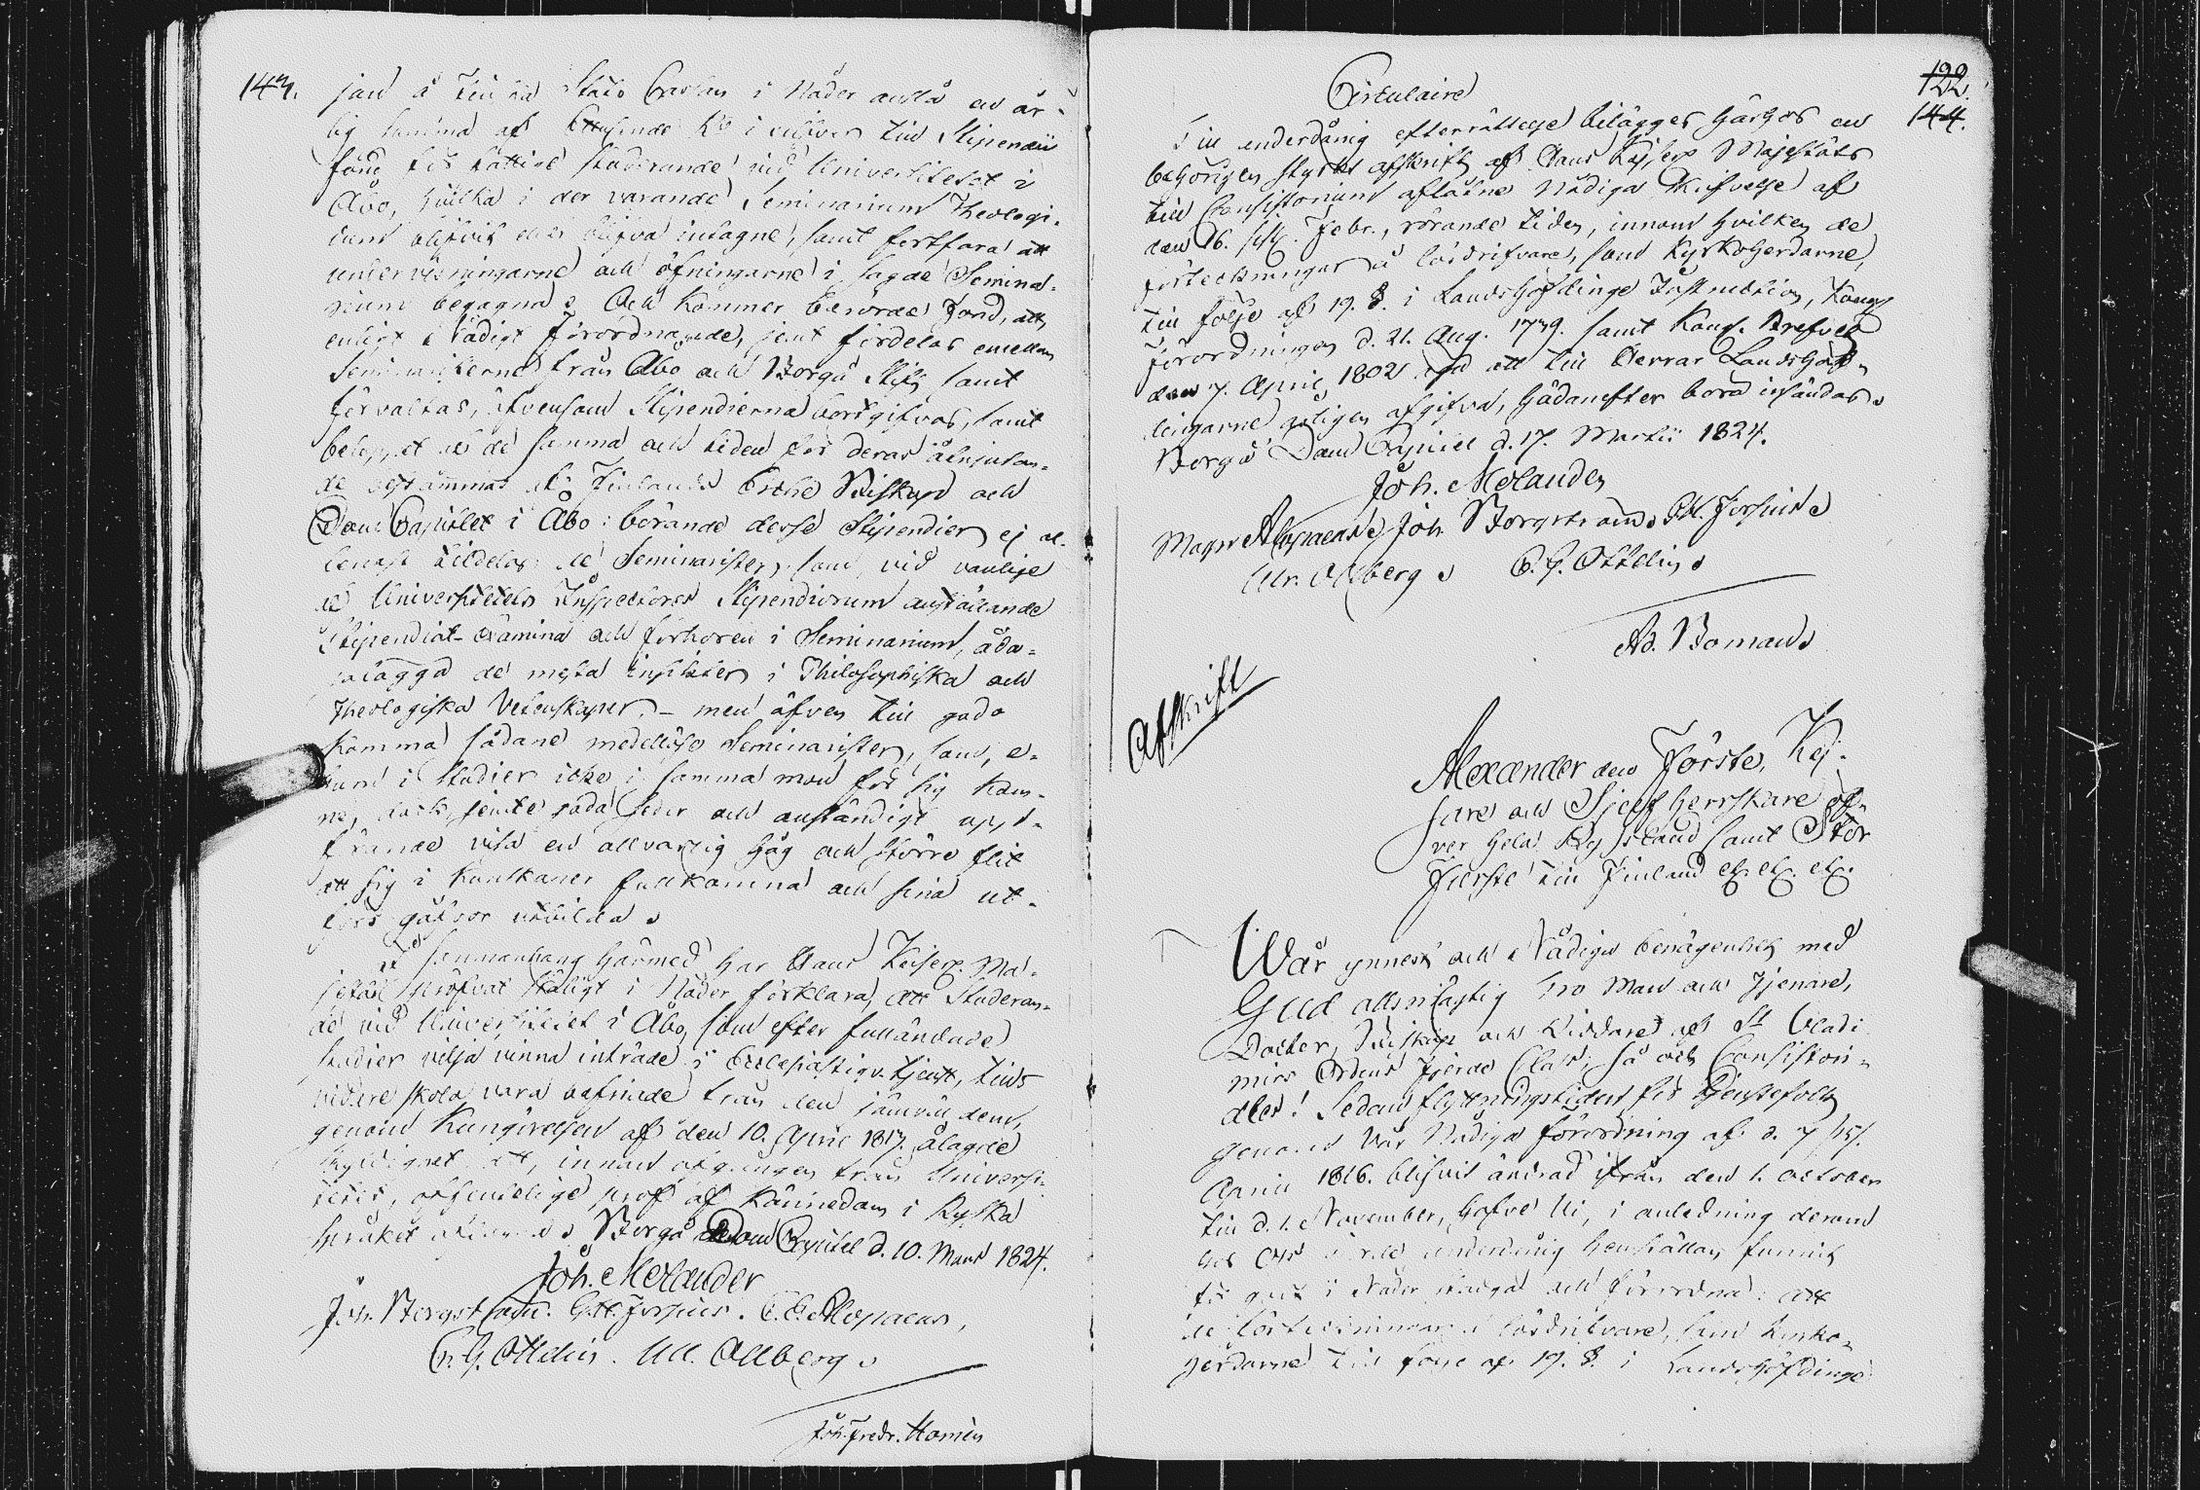 143.
jan å Finska Stats Cassan i Nåder anslå en år-
lig summa af Ettusende R:o i silfver till Stipendii
fond för fattige studerande vid Universitetet i
Åbo, hvilka i der varande Seminarium Theologi-
cum blifvit eller blifva intagne, samt fortfara att
undervisningarne och öfningarne i sagde Semina-
rium begagna. Och kommer berörde Fond, att,
enligt Nådigt Förordnande, jemt fördelas emellan
Seminaristerne från Åbo och Borgå Stift, samt
förvaltas, äfvensom Stipendierna bortgifvas, samt
beloppet af de samma och tiden för deras åtnjutan-
de bestämmas af Finlands Erche Biskop och
Dom Capitlet i Åbo: börande desse Stipendier ej al-
lenast tilldelas de Seminarister, som vid vanlige
af Universitetets Inspectores Stipendiorum anställande
Stipendiat-examina och förhören i Seminarium, åda-
galaggd de mesta insikter i Philosophiska och
Theologiska Vetenskaper, - men äfven till godo
komma sådane medellöse Seminarister, som, e-
huru i studier icke i samma mon för sig kom-
ne, dock jemte goda seder och anständigt upp-
förande visa en allvarlig håg och större flit
att sig i kunskaper fullkomna och sina ut-
förs gåfvor utbilda.
I sammanhang härmed har Hans Kejserl. Ma-
jestät pröfvat skäligt i Nåder förklara, att Studeran-
de vid Universitetet i Åbo, som efter fulländade
studier vilja vinna inträde i Ecclesiastique tjenst, tills
vidare skola vara befriade från den jämväl dem,
genom Kungörelsen af den 10. April 1817. ålagde
skyldighet att, innan afgången från Universi-
tetet, offentelige prof af kännedom i Ryska
språket aflägga. Borgå Dom Capitel d. 10. Mars 1824.
Joh. Molander
Joh. Borgström. G.M. Forsius. C.E. Alopaeus.
C.G. Ottelin. Ulr. Ahlberg.
Joh. Fredr. Homén
122.
144.
Circulaire
Till underdånig efterrättelse bilägges härhos en
behörigen styrkt afskrift af Hans Kejserl. Majestäts
till Consistorium aflåtne Nådiga Skrifvelse af
den 16. sistl. Febr., rörande tiden, innom hvilken de
förteckningar å lösdrifvare, som Kyrkoherdarne,
till följe af 19. §. i Landshöfdinge Instruction, Kongl.
Förordningen d. 21. Aug. 1739. samt Kongl. Brefvet
den 7. April 1802. ega att till Herrar Landshöf-
dingarne årligen afgifva, hädanefter bora insändas.
Borgå Dom Capitel d. 17. Martii 1824.
Joh. Molander
Magn. Alopaeus. Joh. Borgström. G.M. Forsius.
Ulr. Ahlberg. C.G. Ottelin.
Ad. Boman.
Afskrift
Alexander den Förste, Kej-
sare och Sjelfherrskare öf-
ver hela Ryssland samt Stor
Furste till Finland etc. etc. etc.
Wår ynnest och Nådiga benägenhet med
Gud allsmägtig Tro Man och Tjenare,
Doctor, Biskop och Riddare af St. Vladi
mirs Ordens Fjerde Class; så och Consistori-
ales! Sedan flyttningstiden för Tjenstefolk
genom Vår Nådiga Förordning af d. 7/15/.
April 1816. blifvit ändrad ifrån den 1. October
till d. 1. November, hafve Vi, i anledning derom
hos Oss gjord underdånig hemställan funnit
för godt i Nåder stadga och Förordna: att
de förteckningar å lösdrifvare, som kyrko-
herdarne till följe af 19. §. i Landshöfdinge